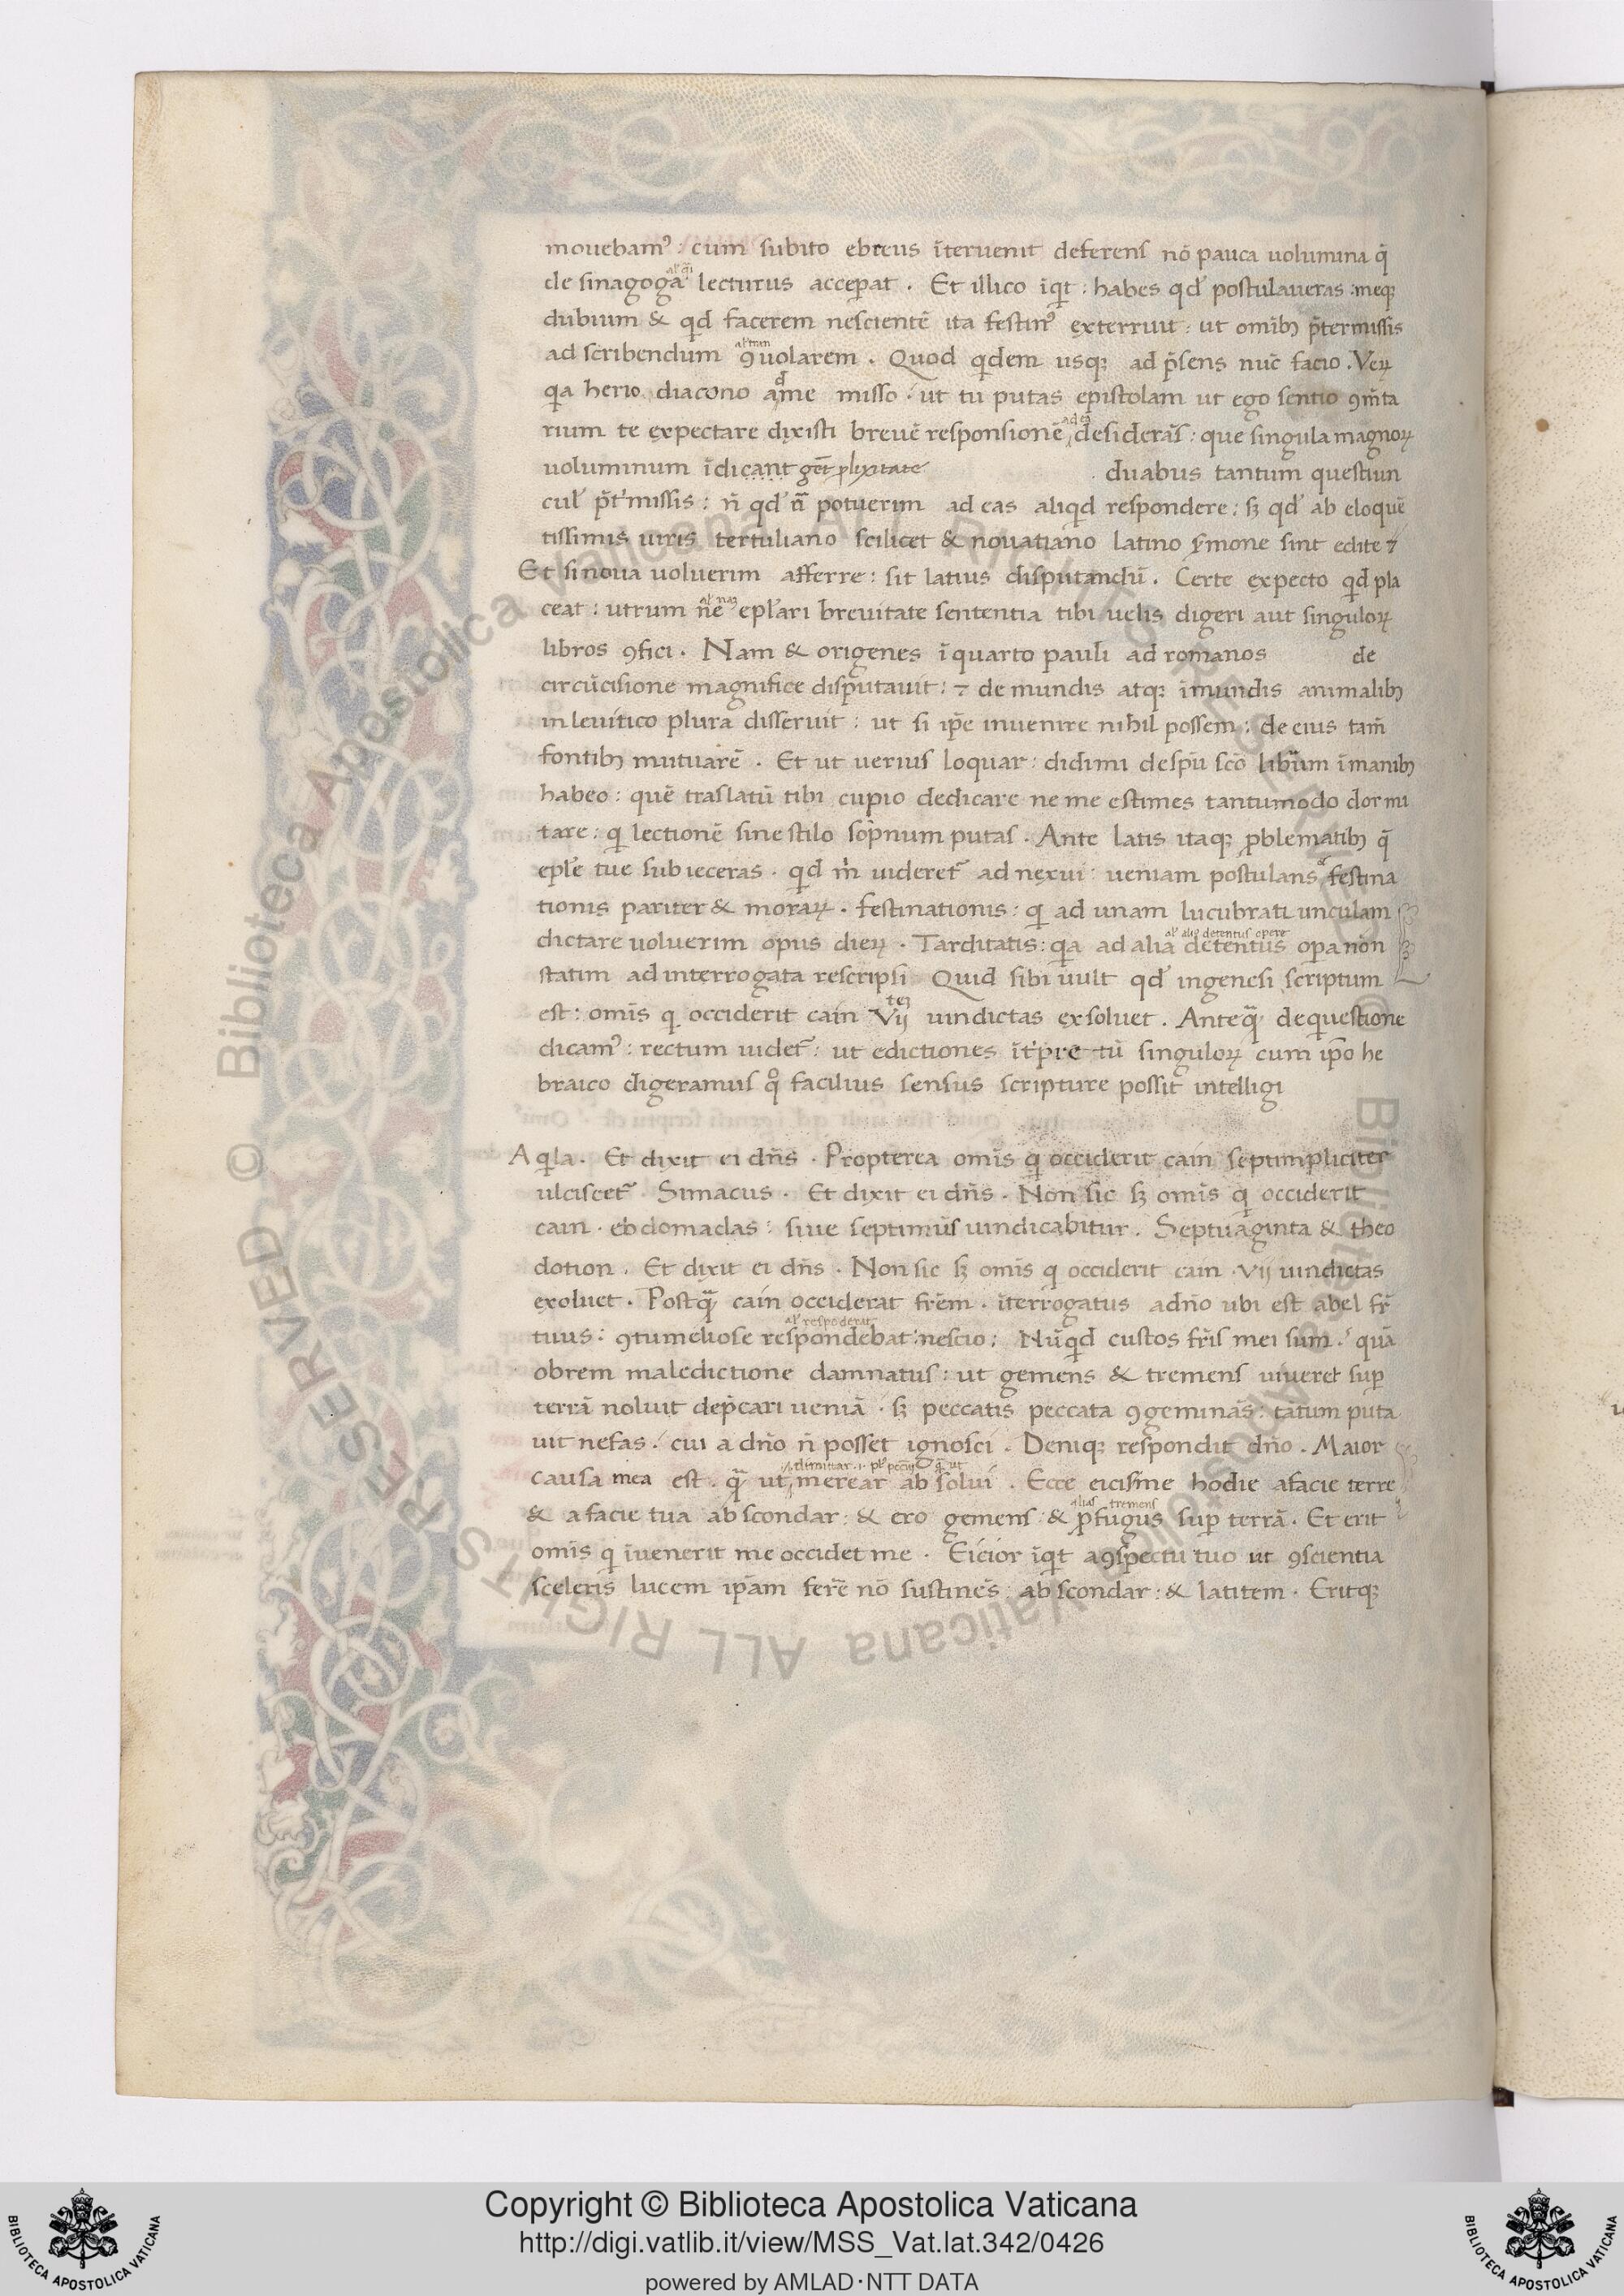 mouebamꝰ : cum subito ebreus īteruenit deferens nō pauca uolumina q̄
de sinagoga al' q̄ lecturus acceperat . Et illico īqt : habes qd' postulaueras : meqꝫ
dubium & qd facerem nescientē ita festinꝰ exterruit : ut omībꝫ p̄termissis
ad scribendum ꝯuolarem . Quod qdem usqꝫ ad p̄sens nūc facio . Veꝝ
qa herio diacono a me misso . ut tu putas epistolam ut ego sentio ꝯm̄ta
rium te expectare dixisti breuē responsionē ad ea desiderās : que singula magnoꝝ
uoluminum īdicant get̄ plixitate duabus tantum questiun
cul' p̄t'missis : n̄ qd' n̄ potuerim ad eas aliqd respondere : sꝫ qd' ab eloquē
tissimis uiris tertuliano scilicet & nouatiano latino s̄mone sint edite ⁊
Et si noua uoluerim afferre : sit latius disputandū . Certe expecto qd pla
ceat : utrum ne epl'ari breuitate sententia tibi uelis digeri aut singuloꝝ
libros ꝯfici . Nam & origenes ī quarto pauli ad romanos de
circūcisione magnifice disputauit : ⁊ de mundis atqꝫ īmundis animalibꝫ
in leuitico plura disseruit : ut si ip̄e inuenire nihil possem : de eius tam̄
fontibꝫ mutuarē . Et ut uerius loquar : didimi de sp̄u scō librum ī manibꝫ
habeo : quē traslatū tibi cupio dedicare ne me estimes tantumodo dormi
tare : q lectionē sine stilo sopnum putas . Ante latis itaqꝫ ꝓblematibꝫ q̄
epl'e tue subieceras . qd m̄ uideret̄ adnexui : ueniam postulans festina
tionis pariter & moraꝝ . festinationis : q ad unam lucubratiunculam
dictare uoluerim opus dieꝝ . Tarditatis : qa ad alia al' alio detentus opere detentus opera non
statim ad interrogata rescripsi Quid sibi uult qd' in genesi scriptum
est : omīs q occiderit cain Vij uindictas exsoluet . Anteq̄ de questione
dicamꝰ : rectum uidet̄ : ut edictiones īt'pretū singuloꝝ cum ip̄o he
braico digeramus qͦ facilius sensus scripture possit intelligi
Aqla . Et dixit ei dn̄s . Propterea omīs q occiderit cain septimpliciter
ulciscet̄ . Simacus . Et dixit ei dn̄s . Non sic sꝫ omīs q occiderit
cain . ebdomadas : siue septimus uindicabitur . Septuaginta & theo
dotion . Et dixit ei dn̄s . Non sic sꝫ omīs q occiderit cain . Vij uindictas
exoluet . Postq̄ cain occiderat frēm . īterrogatus a dn̄o ubi est abel fr̄
tuus : ꝯtumeliose al' respōderat respondebat : nescio : Nūqd custos fr̄is mei sum . quā
obrem maledictione damnatus : ut gemens & tremens uiueret suꝑ
terrā noluit dep̄cari ueniā . sꝫ peccatis peccata ꝯgeminās : tantum puta
uit nefas . cui a dn̄o n̄ posset ignosci . Deniqꝫ respondit dn̄o . Maior
causa mea est . q̄ ut merear absolui . Ecce eicis me hodie a facie terre
& a facie tua abscondar : & ero gemens & alias tremens ꝓfugus suꝑ terrā . Et erit
omīs q īuenerit me occidet me . Eicior īqt a ꝯspectu tuo ut ꝯscientia
sceleris lucem ip̄am ferre nō sustinēs : abscondar : & latitem . Eritqꝫ
Copyright © Biblioteca Apostolica Vaticana
http://digi.vatlib.it/view/MSS_Vat.lat.342/0426
powered by AMLAD·NTT DATA
BIBLIOTECA APOSTOLICA VATICANA
BIBLIOTECA APOSTOLICA VATICANA
© Biblioteca Apostolica Vaticana ALL RIGHTS RESERVED
© Biblioteca Apostolica Vaticana ALL RIGHTS RESERVED